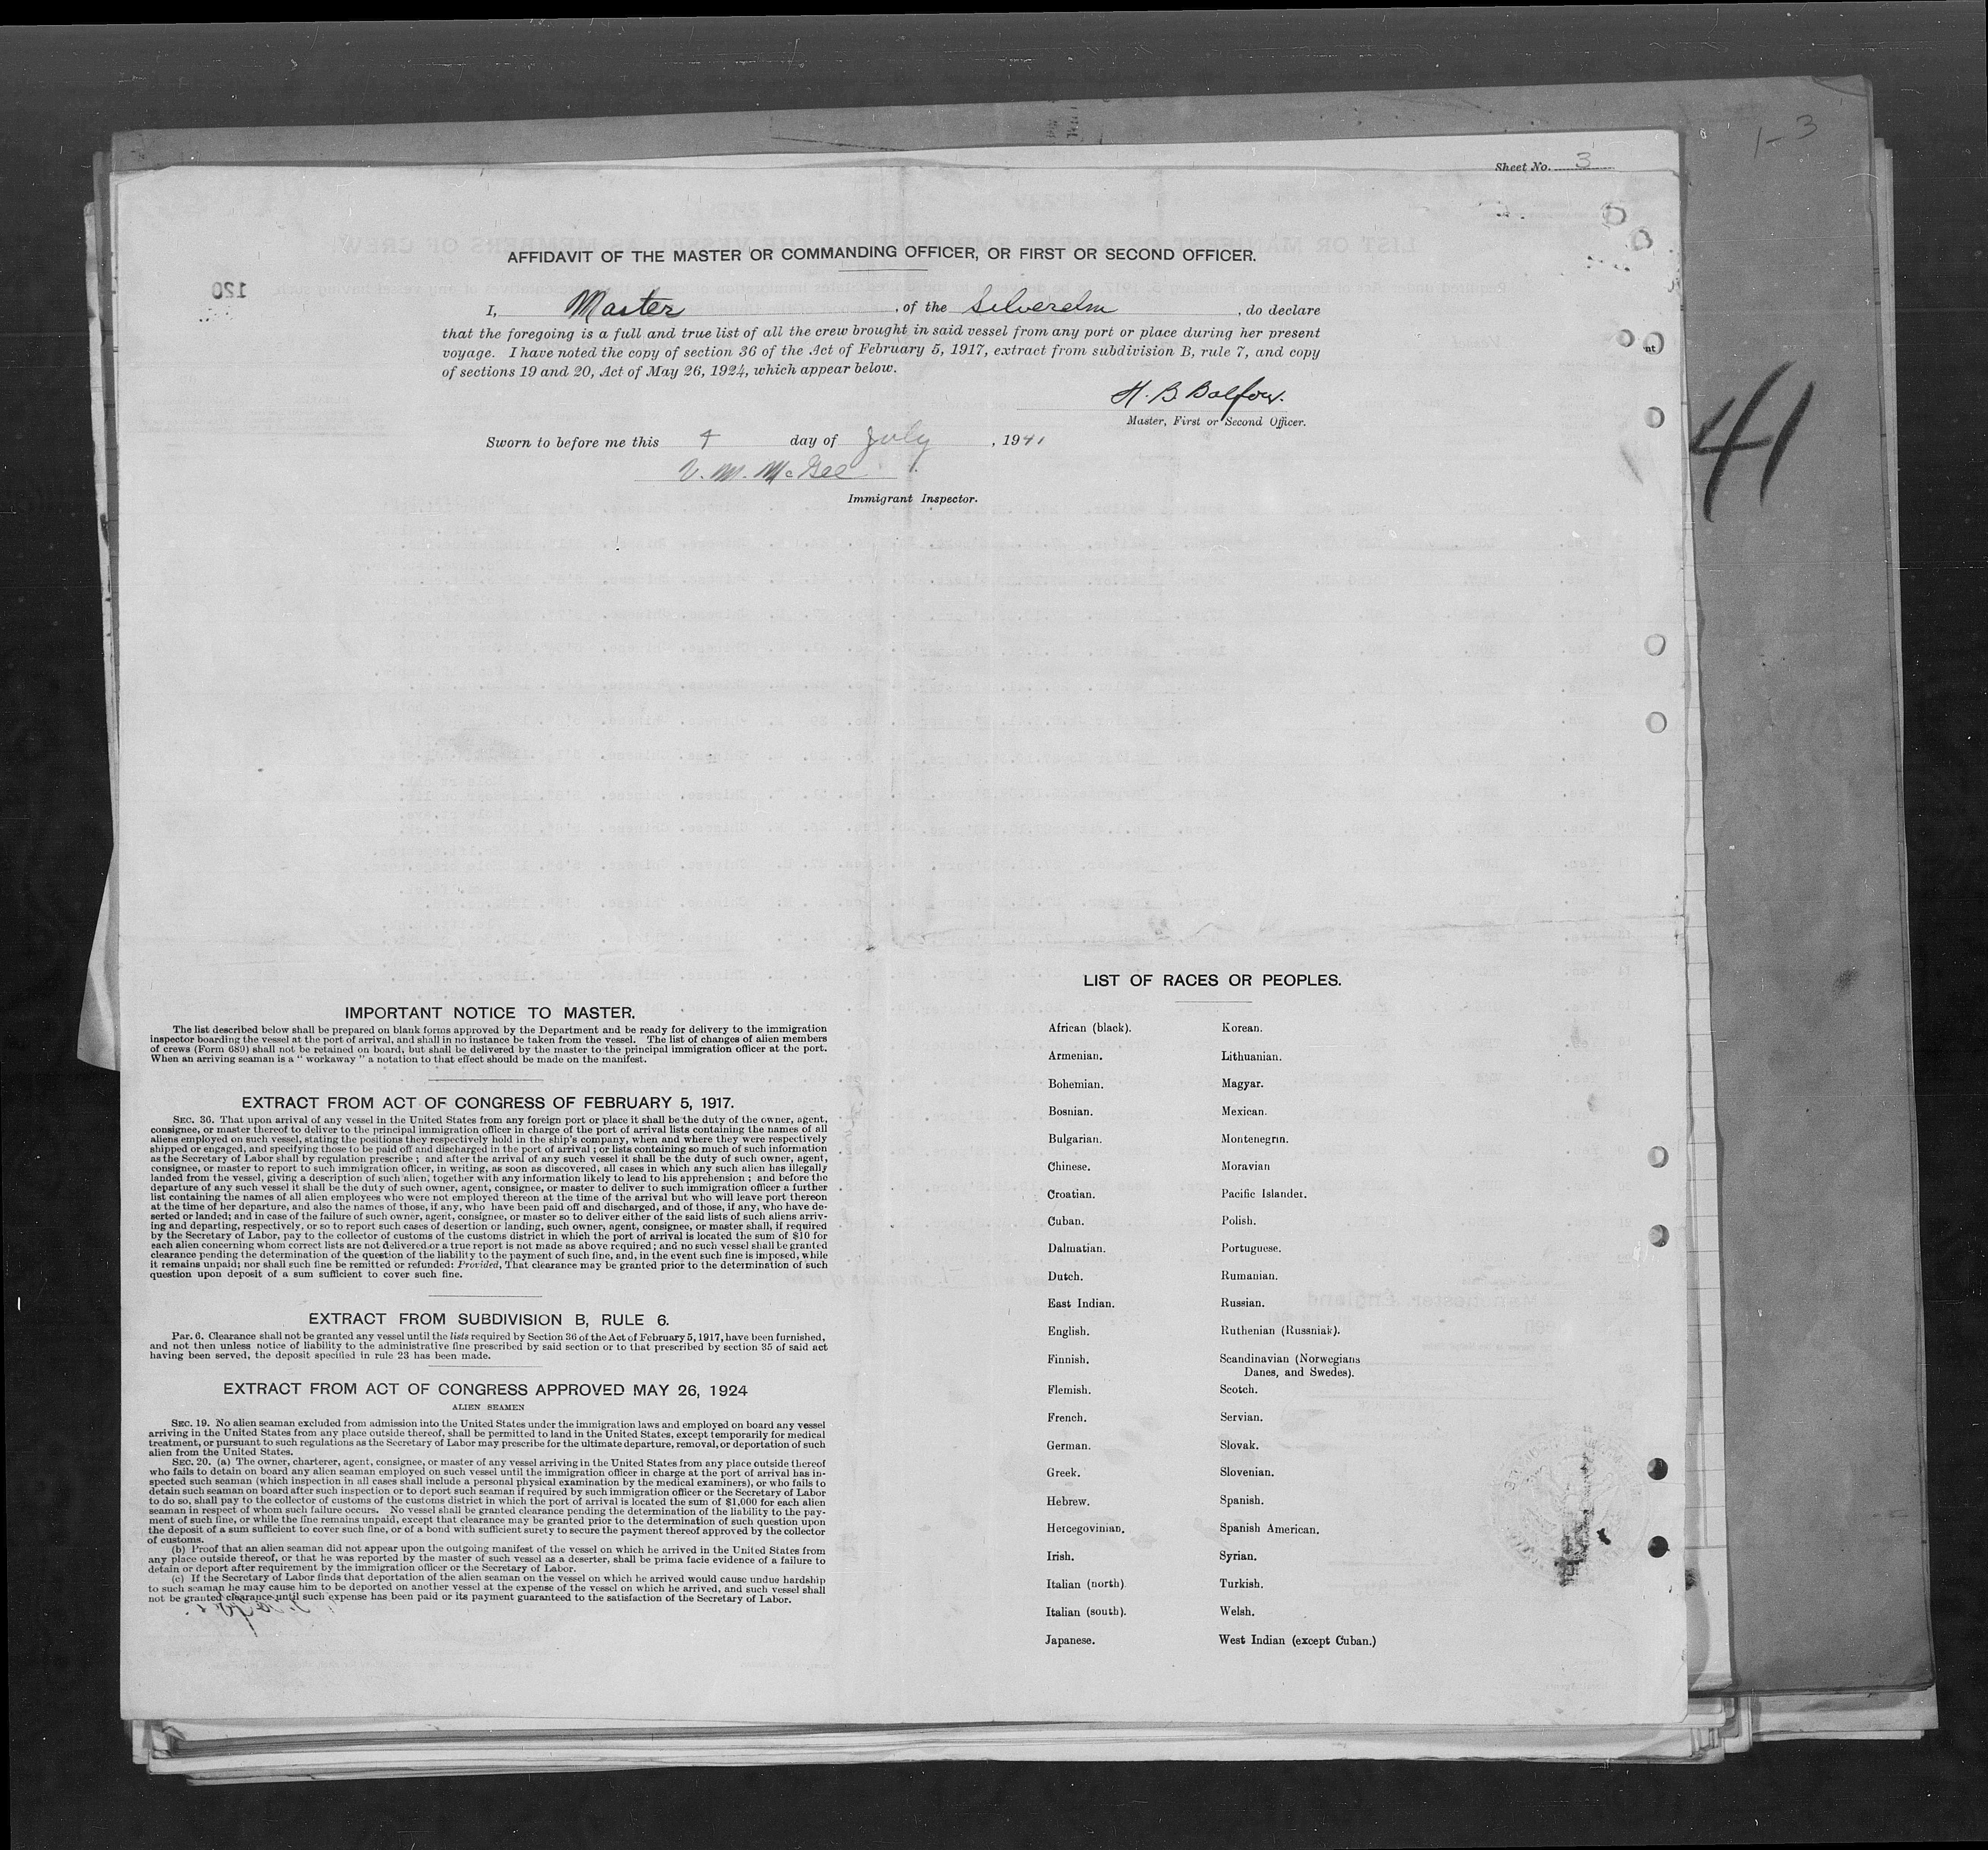 1-3
Sheet No. 3
AFFIDAVIT OF THE MASTER OR COMMANDING OFFICER, OR FIRST OR SECOND OFFICER.
120
I, Master, of the Silverelm, do declare
that the foregoing is a full and true list of all the crew brought in said vessel from any port or place during her present
voyage. I have noted the copy of section 36 of the Act of February 5, 1917, extract from subdivision B, rule 7, and copy
of sections 19 and 20, Act of May 26, 1924, which appear below.
H. B. Balfour.
Master, First or Second Officer.
Sworn to before me this 4 day of July, 1941
V. M. McGee
Immigrant Inspector.
41
IMPORTANT NOTICE TO MASTER.
The list described below shall be prepared on blank forms approved by the Department and be ready for delivery to the immigration
inspector boarding the vessel at the port of arrival, and shall in no instance be taken from the vessel. The list of changes of alien members
of crews (Form 689) shall not be retained on board, but shall be delivered by the master to the principal immigration officer at the port.
When an arriving seaman is a "workaway" a notation to that effect should be made on the manifest.
EXTRACT FROM ACT OF CONGRESS OF FEBRUARY 5, 1917.
SEC. 36. That upon arrival of any vessel in the United States from any foreign port or place it shall be the duty of the owner, agent,
consignee, or master thereof to deliver to the principal immigration officer in charge of the port of arrival lists containing the names of all
aliens employed on such vessel, stating the positions they respectively hold in the ship's company, when and where they were respectively
shipped or engaged, and specifying those to be paid off and discharged in the port of arrival; or lists containing so much of such information
as the Secretary of Labor shall by regulation prescribe; and after the arrival of any such vessel it shall be the duty of such owner, agent,
consignee, or master to report to such immigration officer, in writing, as soon as discovered, all cases in which any such alien has illegally
landed from the vessel, giving a description of such alien, together with any information likely to lead to his apprehension; and before the
departure of any such vessel it shall be the duty of such owner, agent, consignee, or master to deliver to such immigration officer a further
list containing the names of all alien employees who were not employed thereon at the time of the arrival but who will leave port thereon
at the time of her departure, and also the names of those, if any, who have been paid off and discharged, and of those, if any, who have de-
serted or landed; and in case of the failure of such owner, agent, consignee, or master so to deliver either of the said lists of such aliens arriv-
ing and departing, respectively, or so to report such cases of desertion or landing, such owner, agent, consignee, or master shall, if required
by the Secretary of Labor, pay to the collector of customs of the customs district in which the port of arrival is located the sum of $10 for
each alien concerning whom correct lists are not delivered or a true report is not made as above required; and no such vessel shall be granted
clearance pending the determination of the question of the liability to the payment of such fine, and, in the event such fine is imposed, while
it remains unpaid; nor shall such fine be remitted or refunded: Provided, That clearance may be granted prior to the determination of such
question upon deposit of a sum sufficient to cover such fine.
EXTRACT FROM SUBDIVISION B, RULE 6.
Par. 6. Clearance shall not be granted any vessel until the lists required by Section 36 of the Act of February 5, 1917, have been furnished,
and not then unless notice of liability to the administrative fine prescribed by said section or to that prescribed by section 35 of said act
having been served, the deposit specified in rule 23 has been made.
EXTRACT FROM ACT OF CONGRESS APPROVED MAY 26, 1924
ALIEN SEAMEN
SEC. 19. No alien seaman excluded from admission into the United States under the immigration laws and employed on board any vessel
arriving in the United States from any place outside thereof, shall be permitted to land in the United States, except temporarily for medical
treatment, or pursuant to such regulations as the Secretary of Labor may prescribe for the ultimate departure, removal, or deportation of such
alien from the United States.
SEC. 20. (a) The owner, charterer, agent, consignee, or master of any vessel arriving in the United States from any place outside thereof
who fails to detain on board any alien seaman employed on such vessel until the immigration officer in charge at the port of arrival has in-
spected such seaman (which inspection in all cases shall include a personal physical examination by the medical examiners), or who fails to
detain such seaman on board after such inspection or to deport such seaman if required by such immigration officer or the Secretary of Labor
to do so, shall pay to the collector of customs of the customs district in which the port of arrival is located the sum of $1,000 for each alien
seaman in respect of whom such failure occurs. No vessel shall be granted clearance pending the determination of the liability to the pay-
ment of such fine, or while the fine remains unpaid, except that clearance may be granted prior to the determination of such question upon
the deposit of a sum sufficient to cover such fine, or of a bond with sufficient surety to secure the payment thereof approved by the collector
of customs.
(b) Proof that an alien seaman did not appear upon the outgoing manifest of the vessel on which he arrived in the United States from
any place outside thereof, or that he was reported by the master of such vessel as a deserter, shall be prima facie evidence of a failure to
detain or deport after requirement by the immigration officer or the Secretary of Labor.
(c) If the Secretary of Labor finds that deportation of the alien seaman on the vessel on which he arrived would cause undue hardship
to such seaman he may cause him to be deported on another vessel at the expense of the vessel on which he arrived, and such vessel shall
not be granted clearance until such expense has been paid or its payment guaranteed to the satisfaction of the Secretary of Labor.
LIST OF RACES OR PEOPLES.
African (black). Korean.
Armenian. Lithuanian.
Bohemian. Magyar.
Bosnian. Mexican.
Bulgarian. Montenegrin.
Chinese. Moravian
Croatian. Pacific Islander.
Cuban. Polish.
Dalmatian. Portuguese.
Dutch. Rumanian.
East Indian. Russian.
English. Ruthenian (Russniak).
Finnish. Scandinavian (Norwegians
Danes, and Swedes).
Flemish. Scotch.
French. Servian.
German. Slovak.
Greek. Slovenian.
Hebrew. Spanish.
Hercegovinian. Spanish American.
Irish. Syrian.
Italian (north) Turkish.
Italian (south). Welsh.
Japanese. West Indian (except Cuban.)